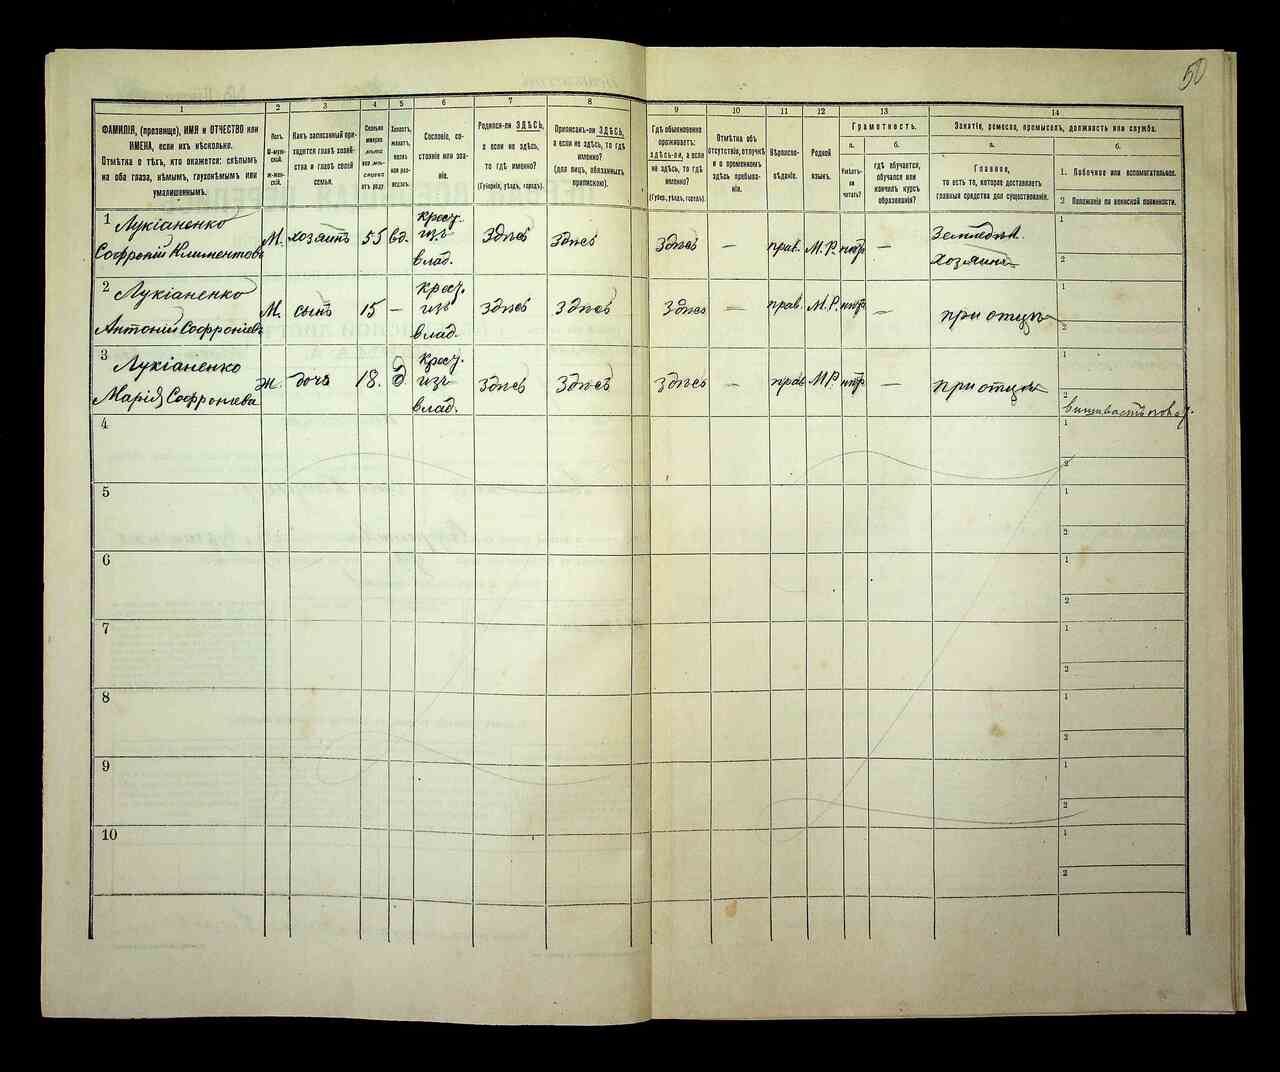 50
1
2
3
4
5
6
7
8
9
10
11
12
13
14
ФАМИЛІЯ, (прозвище), ИМЯ и ОТЧЕСТВО или
ИМЕНА, если ихъ нѣсколько.
Отмѣтка о тѣхъ, кто окажется: слѣпымъ
на оба глаза, нѣмымъ, глухонѣмымъ или
умалишеннымъ.
Полъ.
М-муж-
ской.
Ж-жен-
скій.
Какъ записанный при-
ходится главѣ хозяй-
ства и главѣ своей
семьи.
Сколько
минуло
отъ роду
Холостъ,
женатъ,
вдовъ
или раз-
веденъ.
Сословіе, со-
стояніе или зва-
ніе.
Родился-ли ЗДѢСЬ,
а если не здѣсь,
то гдѣ именно?
(Губернія, уѣздъ, городъ).
Приписанъ-ли ЗДѢСЬ,
а если не здѣсь, то гдѣ
именно?
(для лицъ, обязанныхъ
припискою).
Гдѣ обыкновенно
проживаетъ:
здѣсь-ли, а если
не здѣсь, то гдѣ
именно?
(Губер., уѣздъ, городъ).
Отмѣтка объ
отсутствіи, отлучкѣ
и о временномъ
здѣсь пребыва-
ніи.
Вѣроиспо-
вѣданіе.
Родной
языкъ.
Грамотность.
а.
Умѣетъ-
ли
читать?
б.
гдѣ обучается,
обучался или
кончилъ курсъ
образованія?
Занятіе, ремесло, промыселъ, должность или служба.
а.
Главное,
то есть то, которое доставляетъ
главныя средства для существованія.
б.
1. Побочное или вспомогательное.
2 Положеніе по воинской повинности.
1
Лукіаненко
Софроній Климентовъ
М. хозяинъ 55 вд.
крест.
изъ
влад.
Здѣсь Здѣсь Здѣсь — прав. М.Р. —
Земледѣл.
хозяинъ
1
2
2
Лукіаненко
Антоній Софроніевъ
М. сынъ 15 —
крест.
изъ
влад.
Здѣсь Здѣсь Здѣсь — прав. М.Р. —
при отцѣ
1
2
3
Лукіаненко
Марія Софроніева
ж. дочь 18. д
крест.
изъ
влад.
Здѣсь Здѣсь Здѣсь — прав МР —
при отцѣ
1
2
4
1
2
5
1
2
6
1
2
7
1
2
8
1
2
9
1
2
10
1
2